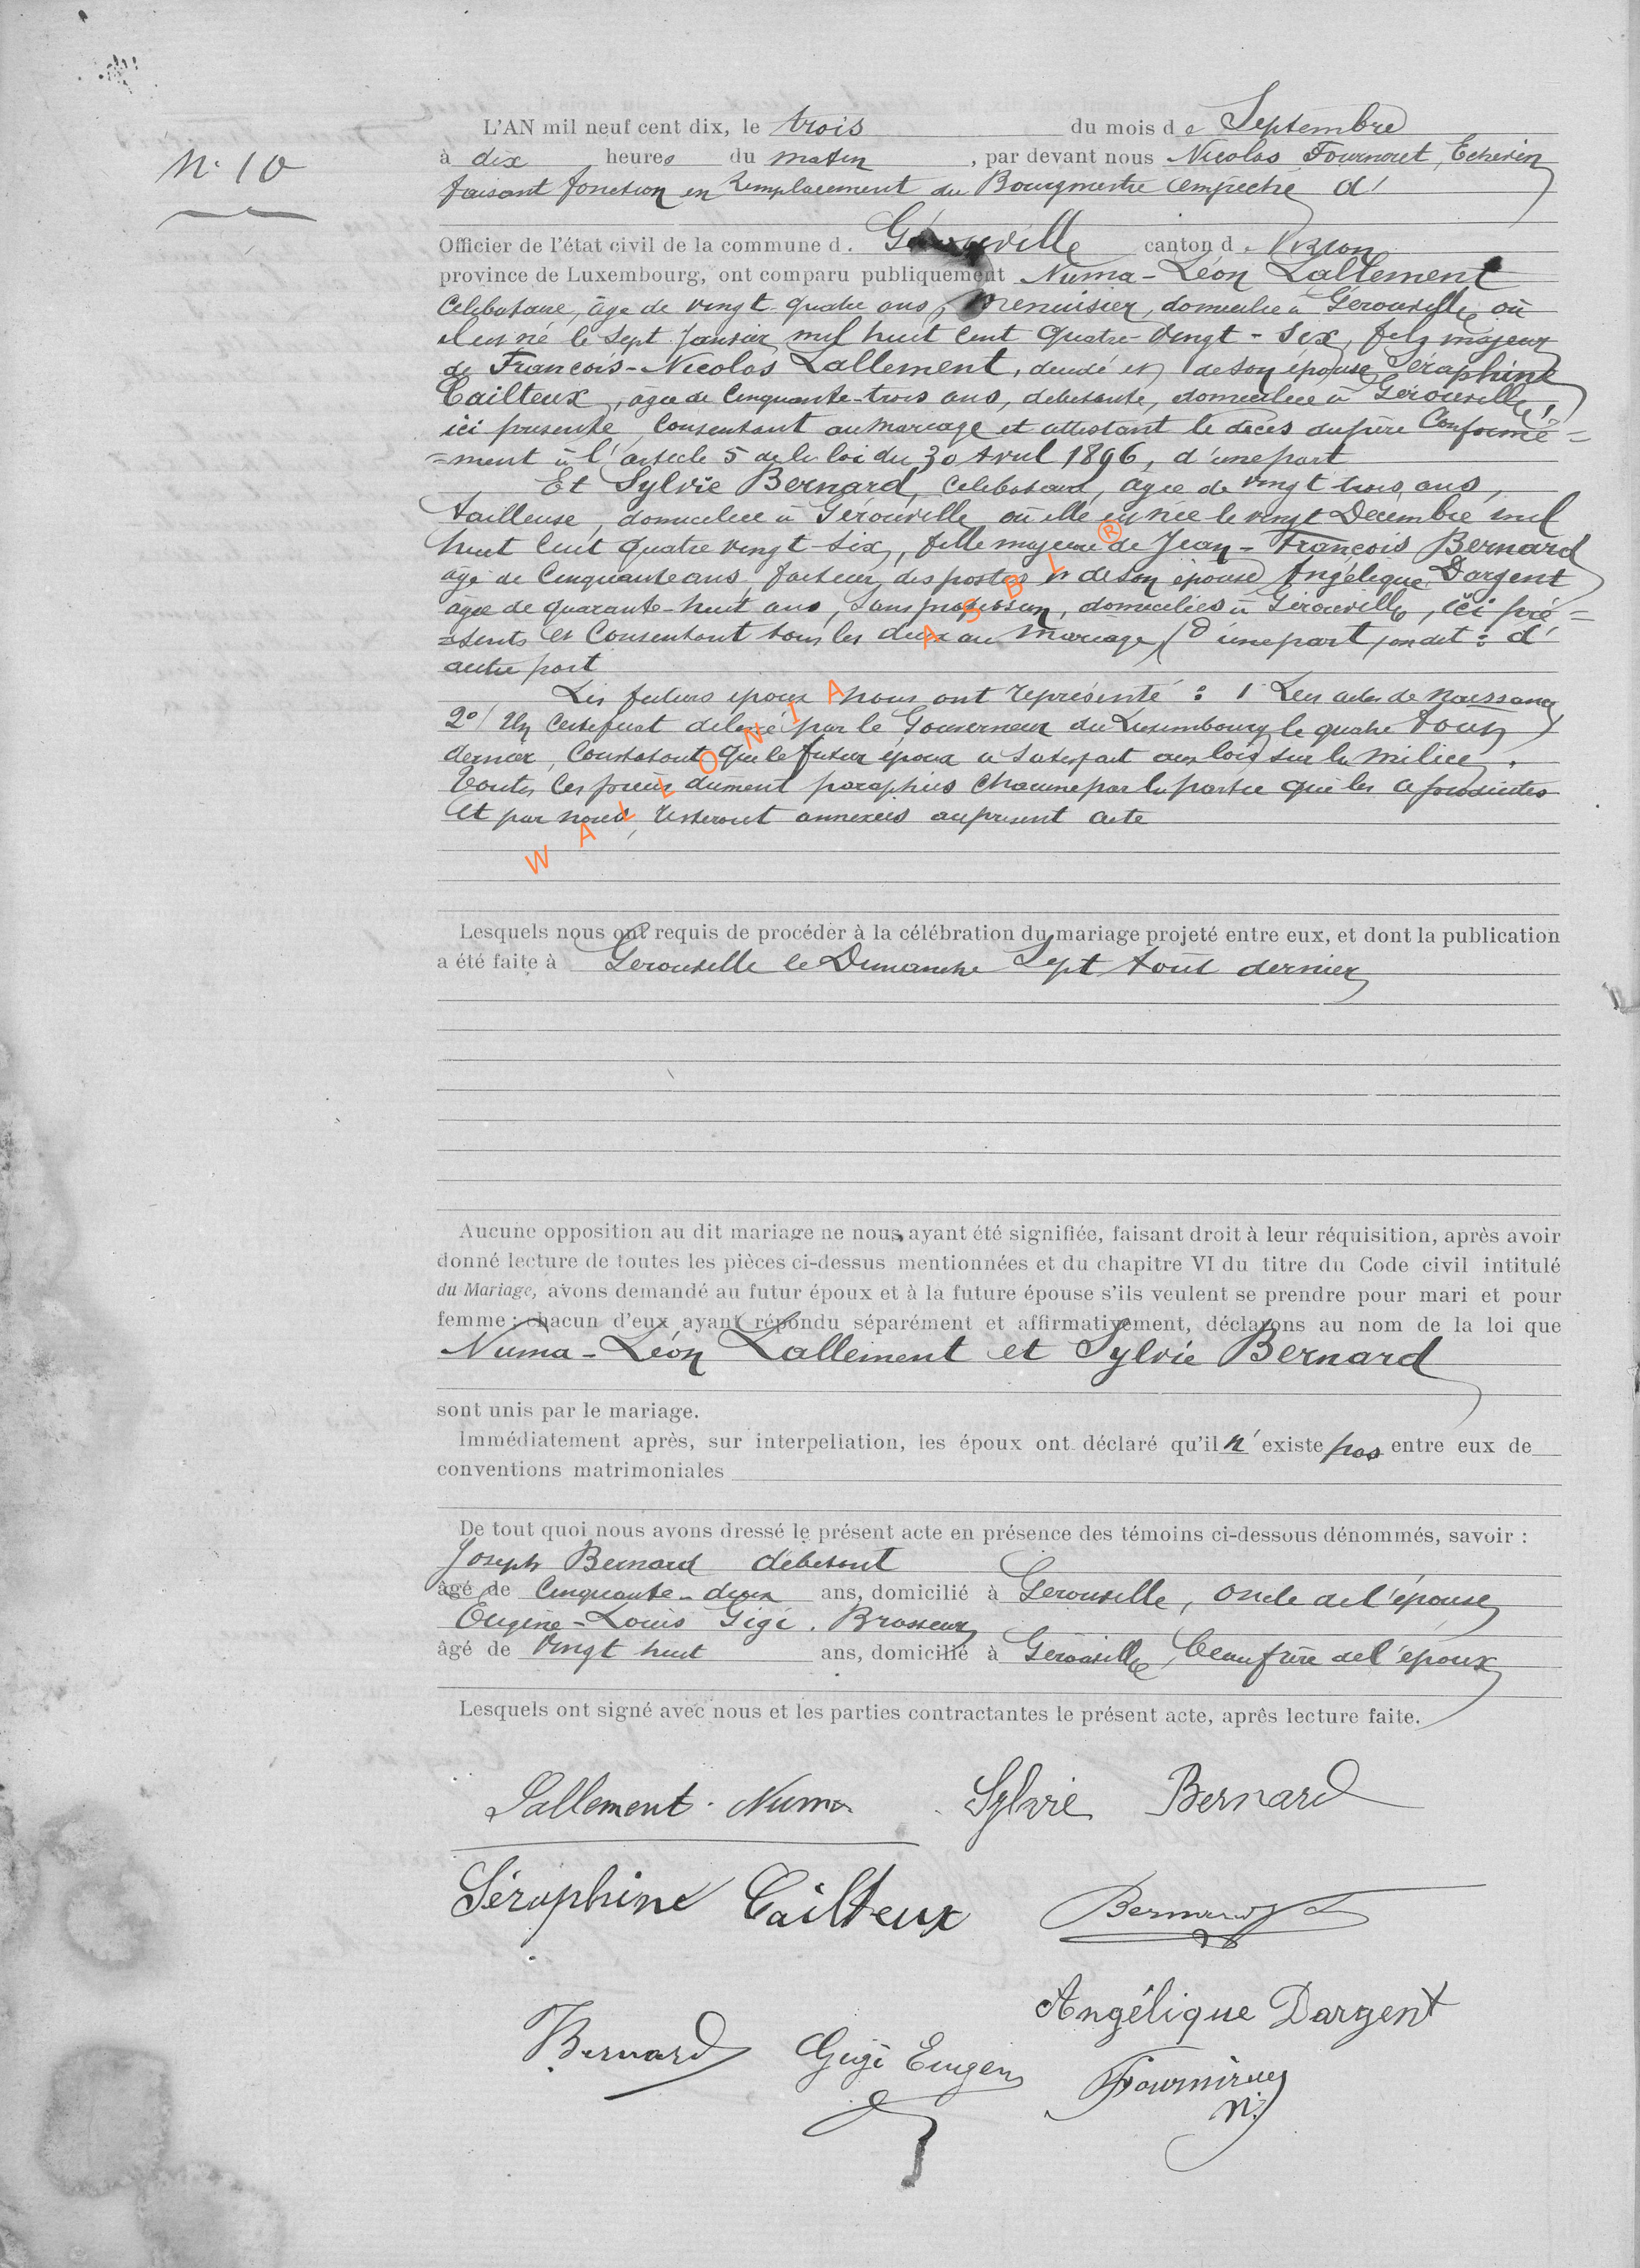 N° 10
L'AN mil neuf cent dix, le trois du mois de Septembre
à dix heures du matin, par devant nous Nicolas Fournout, Echevin
faisant fonction en remplacement du Bourgmestre empêché d'
Officier de l'état civil de la commune d. Gérouville canton d. Virton
province de Luxembourg, ont comparu publiquement Numa-Léon Lallement
célibataire, âgé de vingt quatre ans, menuisier, domicilié à Gérouville où
il est né le sept Janvier mil huit cent quatre-vingt-six, fils majeur
de François-Nicolas Lallement, décédé et de son épouse Séraphine
Cailteux, âgée de cinquante-trois ans, débitante, domiciliée à Gérouville,
ici présente, consentant au mariage et attestant le décès du père Conformé=
=ment à l'article 5 de la loi du 30 Avril 1896, d'une part
Et Sylvie Bernard, célibataire, âgée de vingt trois ans,
tailleuse, domiciliée à Gérouville où elle est née le vingt Décembre mil
huit cent quatre vingt-six, fille majeure de Jean-François Bernard
âgé de cinquante ans, facteur des postes et de son épouse Angélique Dargent
âgée de quarante-huit ans, sans profession, domiciliés à Gérouville, ici pré=
=sents et consentant tous les deux au mariage, d'une part on dit : d'
autre part
Les futurs époux nous ont représenté : 1° Leur actes de naissance
2°/ Un certificat délivré par le Gouverneur du Luxembourg le quatre Aout
dernier, constatant que le futur époux a satisfait aux lois sur la milice.
Toutes ces pièces dûment paraphées chacune par la partie qui les a produites
et par nous, resteront annexées au présent acte
WALLONIA ASBL ®
Lesquels nous ont requis de procéder à la célébration du mariage projeté entre eux, et dont la publication
a été faite à Gérouville le Dimanche Sept Août dernier
Aucune opposition au dit mariage ne nous ayant été signifiée, faisant droit à leur réquisition, après avoir
donné lecture de toutes les pièces ci-dessus mentionnées et du chapitre VI du titre du Code civil intitulé
du Mariage, avons demandé au futur époux et à la future épouse s'ils veulent se prendre pour mari et pour
femme ; chacun d'eux ayant répondu séparément et affirmativement, déclarons au nom de la loi que
Numa-Léon Lallement et Sylvie Bernard
sont unis par le mariage.
Immédiatement après, sur interpellation, les époux ont déclaré qu'il n'existe pas entre eux de
conventions matrimoniales
De tout quoi nous avons dressé le présent acte en présence des témoins ci-dessous dénommés, savoir :
Joseph Bernard débitant
âgé de cinquante-deux ans, domicilié à Gérouville, oncle de l'épouse
Eugène-Louis Gigi, Brasseur
âgé de vingt huit ans, domicilié à Gérouville, beau frère de l'époux
Lesquels ont signé avec nous et les parties contractantes le présent acte, après lecture faite.
Lallement Numa Sylvie Bernard
Séraphine Cailteux Bernard
Angélique Dargent
Bernard Gigi Eugène
N.